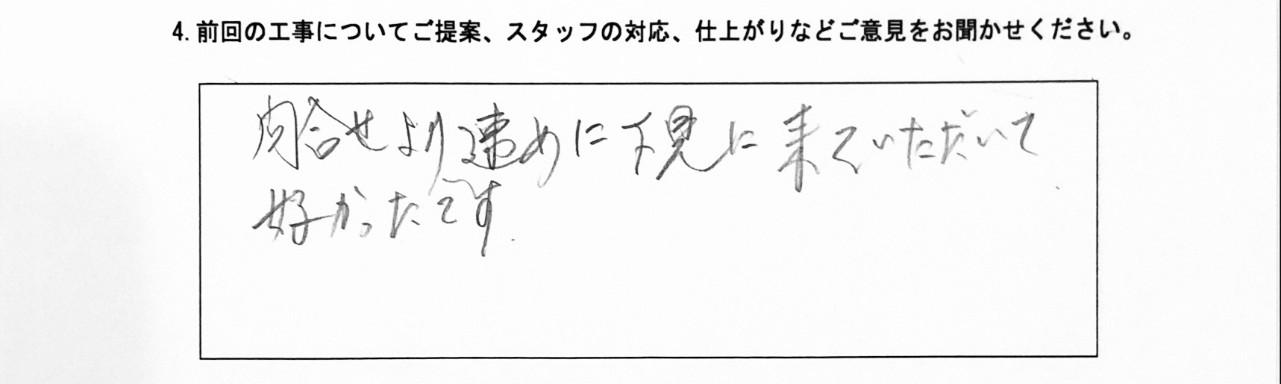 4. 前回の工事についてご提案、スタッフの対応、仕上がりなどご意見をお聞かせください。
問合せより速めに下見に来ていただいて
好かったです.